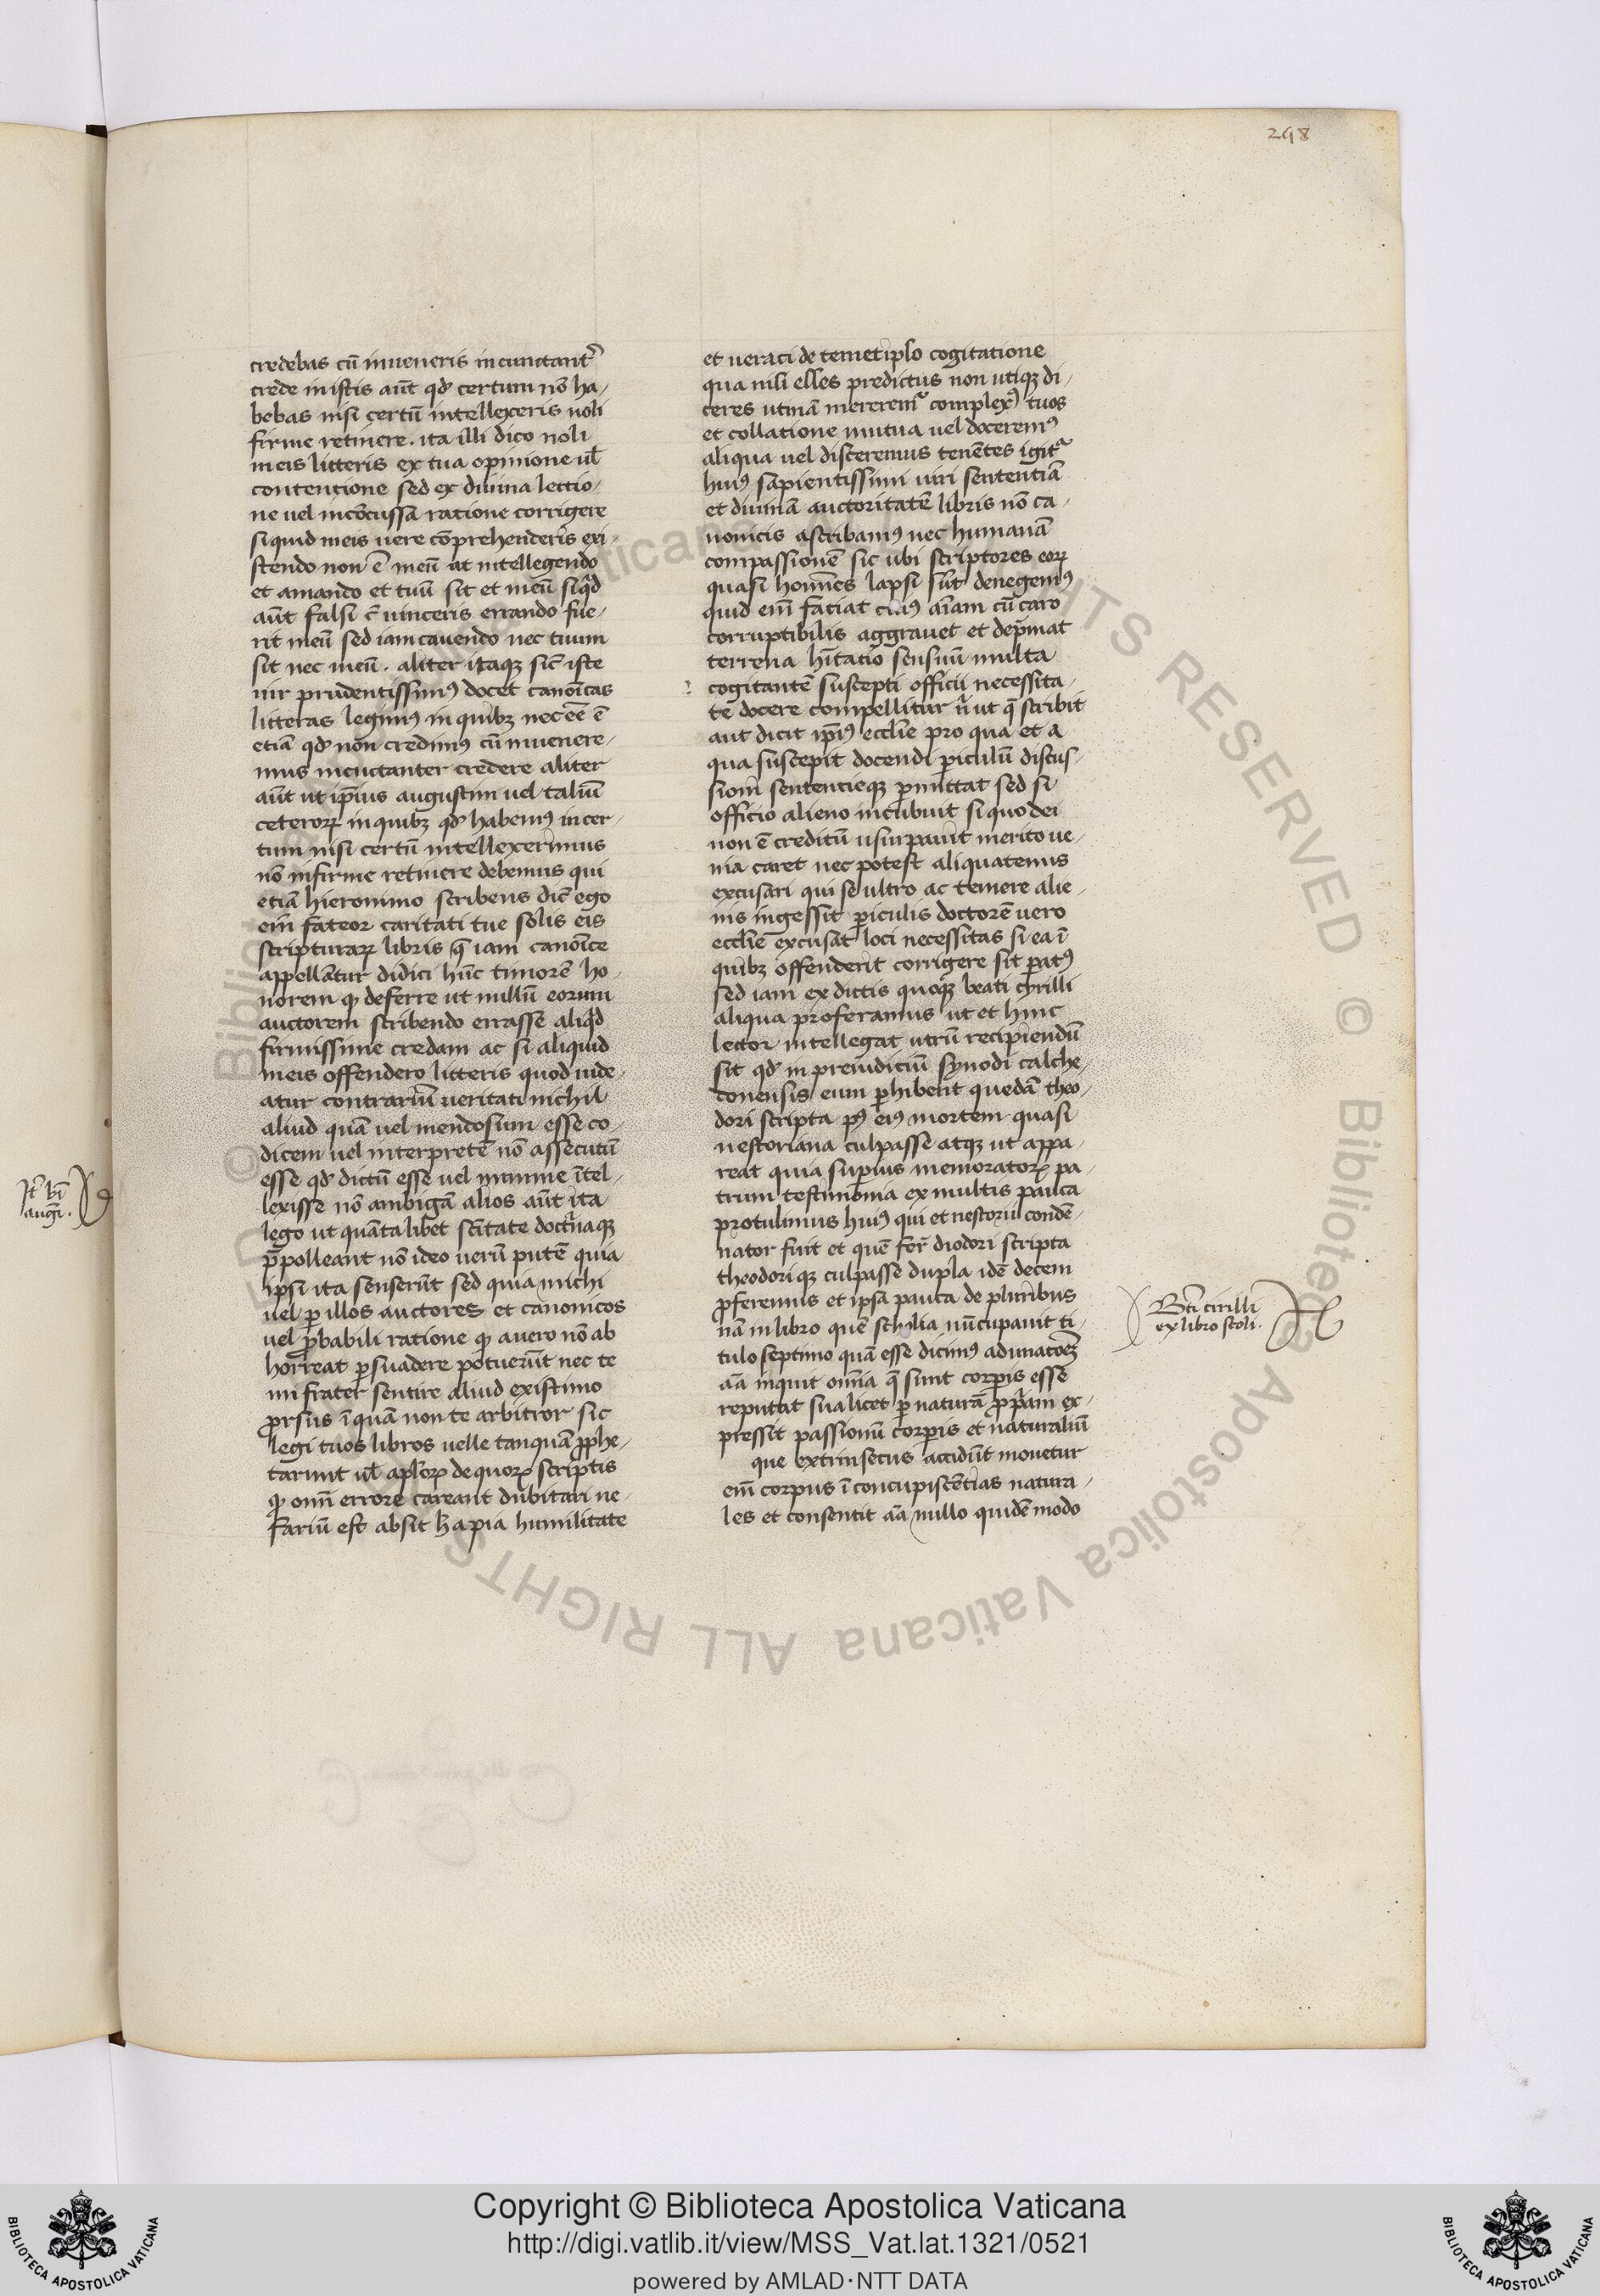 298
credebas cū inueneris incunctant᷑
crede in istis aūt qd̕ certum nō ha-
bebas nisi certū intellexeris noli
firme retinere. ita illi dico noli
meis litteris ex tua opinione ul̄
contentione sed ex diuina lectio-
ne uel incōcussa ratione corrigere
si quid meis uere cōprehenderis exi-
stendo non ē meū at intellegendo
et amando et tuū sit et meū siqͥd
aūt falsi c̄uinceris errando fue-
rit meū sed iam cauendo nec tuum
sit nec meū. aliter itaqꝫ sic̄ iste
uir prudentissimꝰ docet canōicas
litteras legimꝰ in quibꝫ nec eē ē
etiā qd̕ non credimꝰ cū inuenere-
mus incūctanter credere aliter
aūt ut ip̄ius augustini uel taliū
ceteroꝝ in quibꝫ qd̕ habemꝰ incer-
tum nisi certū intellexerimus
nō infirme retinere debemus qui
etiā hieronimo scribens dic̄ ego
eīn fateor caritati tue solis eis
scripturaꝝ libris q̄ iam canōice
appellātur didici hūc timorē ho-
norem qꝫ deferre ut nullū eorum
auctorem scribendo errasse aliqͥd
firmissime credam ac si aliquid
meis offendero litteris quod uide-
atur contrariū ueritati nichil
aliud quā uel mendosum esse co-
dicem uel interpretē nō assecutū
esse qd̕ dictū esse uel minime ītel-
lexisse nō ambigā alios aūt ita
lego ut quāta libet sc̄itate doctͥnaqꝫ
p̄polleant nō ideo uerū putē quia
ipsi ita senserūt sed quia michi
uel ꝑ illos auctores et canonicos
uel ꝓbabili ratione qꝫ a uero nō ab
horreat ꝑsuadere potuerūt nec te
mi frater sentire aliud existimo
ꝓrsus īquā non te arbitror sic
legi tuos libros uelle tanquā ꝓphe-
tarum ul̄ apl̄oꝝ de quoꝝ scriptis
qꝫ om̄i errore careant dubitari ne-
farium est absit h̄ a pia humilitate
et ueraci de temetipso cogitatione
qua nisi esses predictus non utiqꝫ di-
ceres utinā mereremᷣ complexꝰ tuos
et collatione mutua uel doceremꝰ
aliqua uel disceremus tenētes igitᷣ
huiꝰ sapientissimi uiri sententiā
et diuinā auctoritatē libris nō ca-
nonicis ascribamꝰ nec humanā
compassionē sic ubi scriptores eoꝝ
quasi homīes lapsi sūt denegemꝰ
quid eīn faciat cuiꝰ aīam cū caro
corruptibilis aggrauet et depͥmat
terrena hītatio sensuū multa
cogitantē suscepti officii necessita-
te docere compellitur
aut dicit ip̄iꝰ eccl̄ie pro qua et a
qua suscepit docendi ꝑiculū discus-
sioni sententieqꝫ ꝑmittat sed si
officio alieno incubuit si quo dei
non ē creditū usurpauit merito ue-
nia caret nec potest aliquatenus
excusari qui se ultro ac temere alie-
nis ingessit ꝑiculis doctorē uero
eccl̄ie excusat loci necessitas si ea ī
quibꝫ offenderit corrigere sit ꝑatꝰ
sed iam ex dictis quoqꝫ beati cyrilli
aliqua proferamus ut et hinc
lector intellegat utrū recipiendū
sit qd̕ in preiudiciū synodi calche-
donensis eum ꝑhibent quedā theo-
dori scripta pꝰ eiꝰ mortem quasi
nestoriana culpasse atqꝫ ut appa-
reat quia suꝑius memoratoꝝ pa-
trum testimōnia ex multis pauca
protulimus huiꝰ qui et nestorii condē-
nator fuit et quē fer̄ diodori scripta
theodoriqꝫ culpasse dupla idē decem
ꝓferemus et ipsa pauca de pluribus
nā in libro quē scholia nūcupauit ti-
tulo septimo quā esse dicimꝰ adunatōeꝫ
aīa inquit om̄ia q̄ sunt corꝑis esse
reputat sua licet ꝑ naturā ꝓpͥam ex-
pressit passionū corꝑis et naturaliū
que extrinsecus accidūt mouetur
eīn corpus ī concupiscētias natura-
les et consentit aīa nullo quidē modo
It̄ bī
auḡi.
Bt̄i cirilli
ex libro scoli.
Copyright © Biblioteca Apostolica Vaticana
http://digi.vatlib.it/view/MSS_Vat.lat.1321/0521
powered by AMLAD·NTT DATA
BIBLIOTECA APOSTOLICA VATICANA
BIBLIOTECA APOSTOLICA VATICANA
© Biblioteca Apostolica Vaticana ALL RIGHTS RESERVED